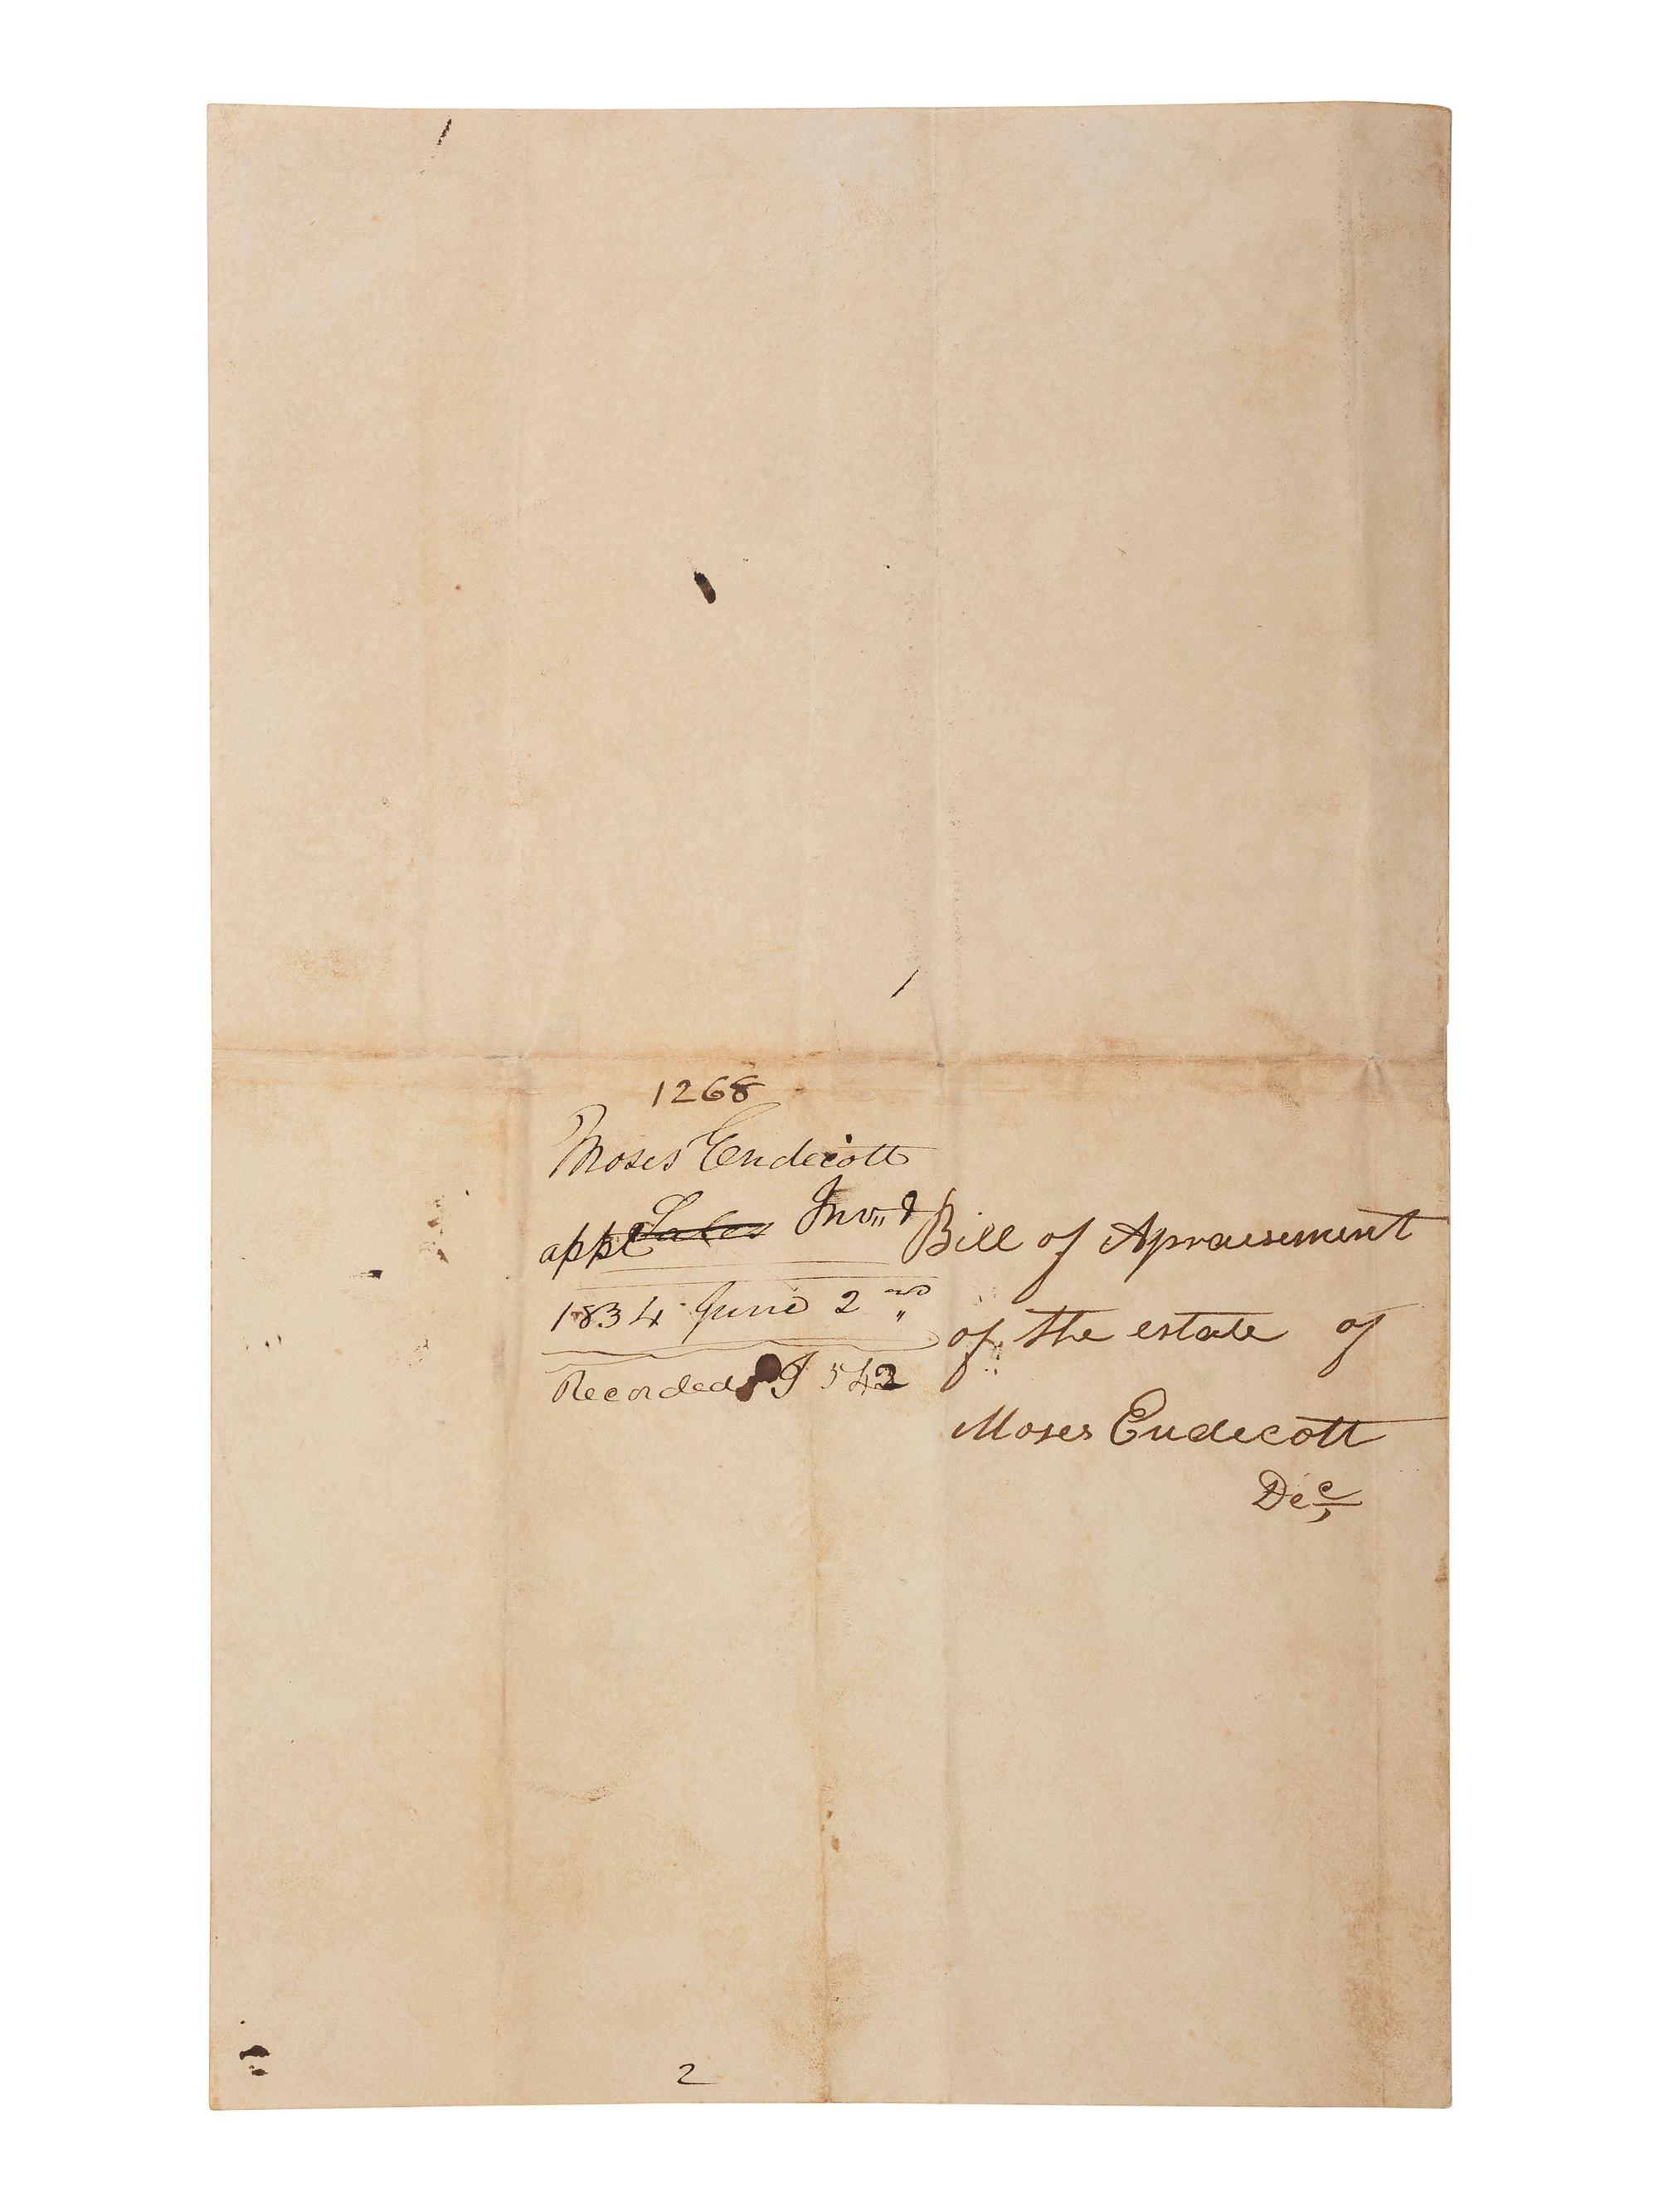 1268
Moses Endecott
appt Sales Inv.
1834 June 2nd
Recorded 542
Bill of Apraisement
of the estate of
Moses Endecott
Dec
2